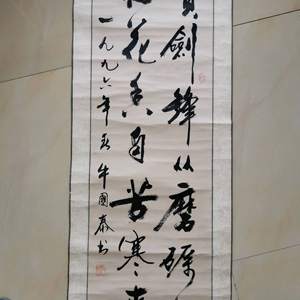 劍鋒從磨礪
花香自苦寒來
一九九六年春牛國泰书